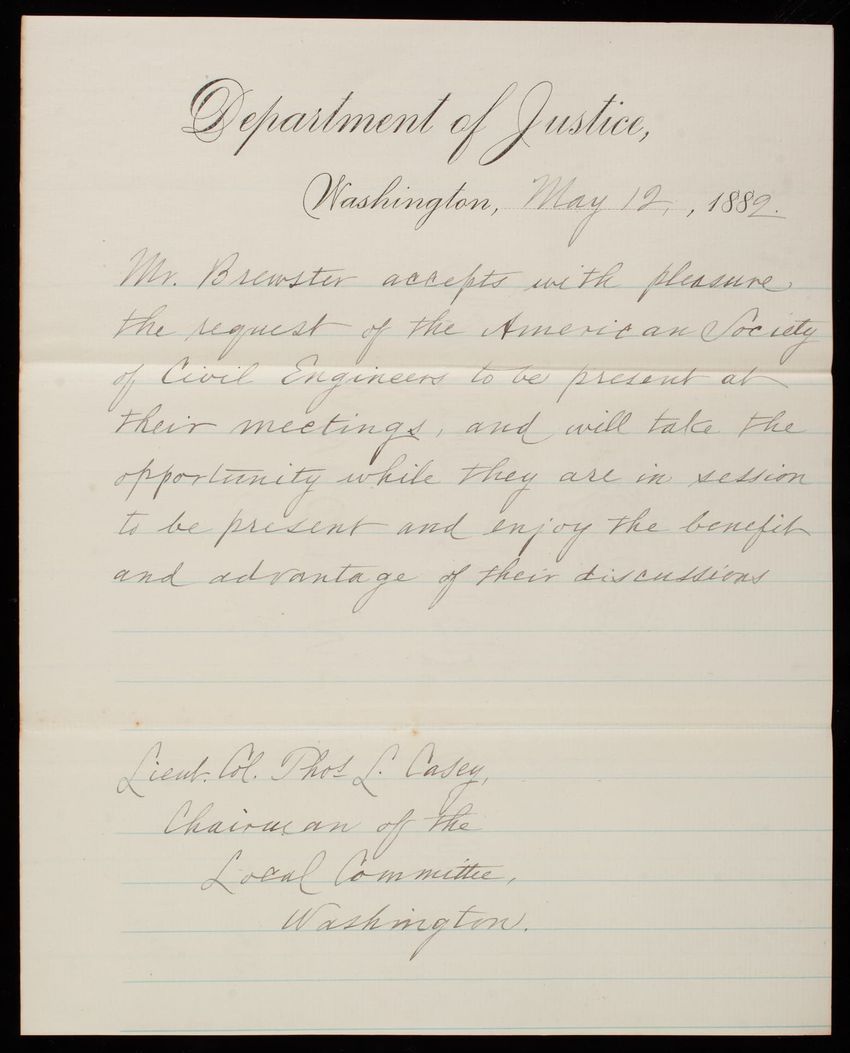 Department of Justice,
Washington, May 12, , 1882.
Mr. Brewster accepts with pleasure
the request of the American Society
of Civil Engineers to be present at
their meetings, and will take the
opportunity while they are in session
to be present and enjoy the benefit
and advantage of their discussions
Lieut. Col. Thos L. Casey,
Chairman of the
Local Committee,
Washington.